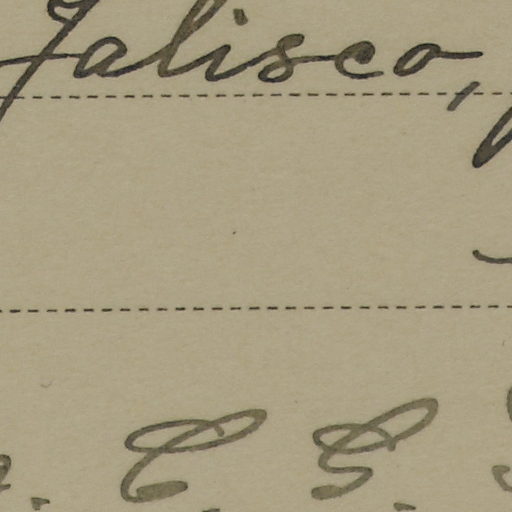 Jalisco,
C. G.